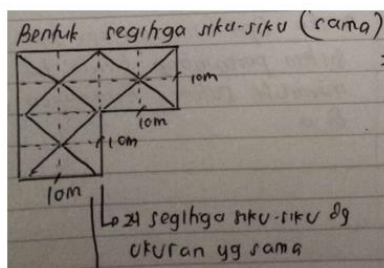 Bentuk segitiga siku-siku (sama)
10m
10m
10m
10m
↳ 24 segitiga siku-siku dg
ukuran yg sama